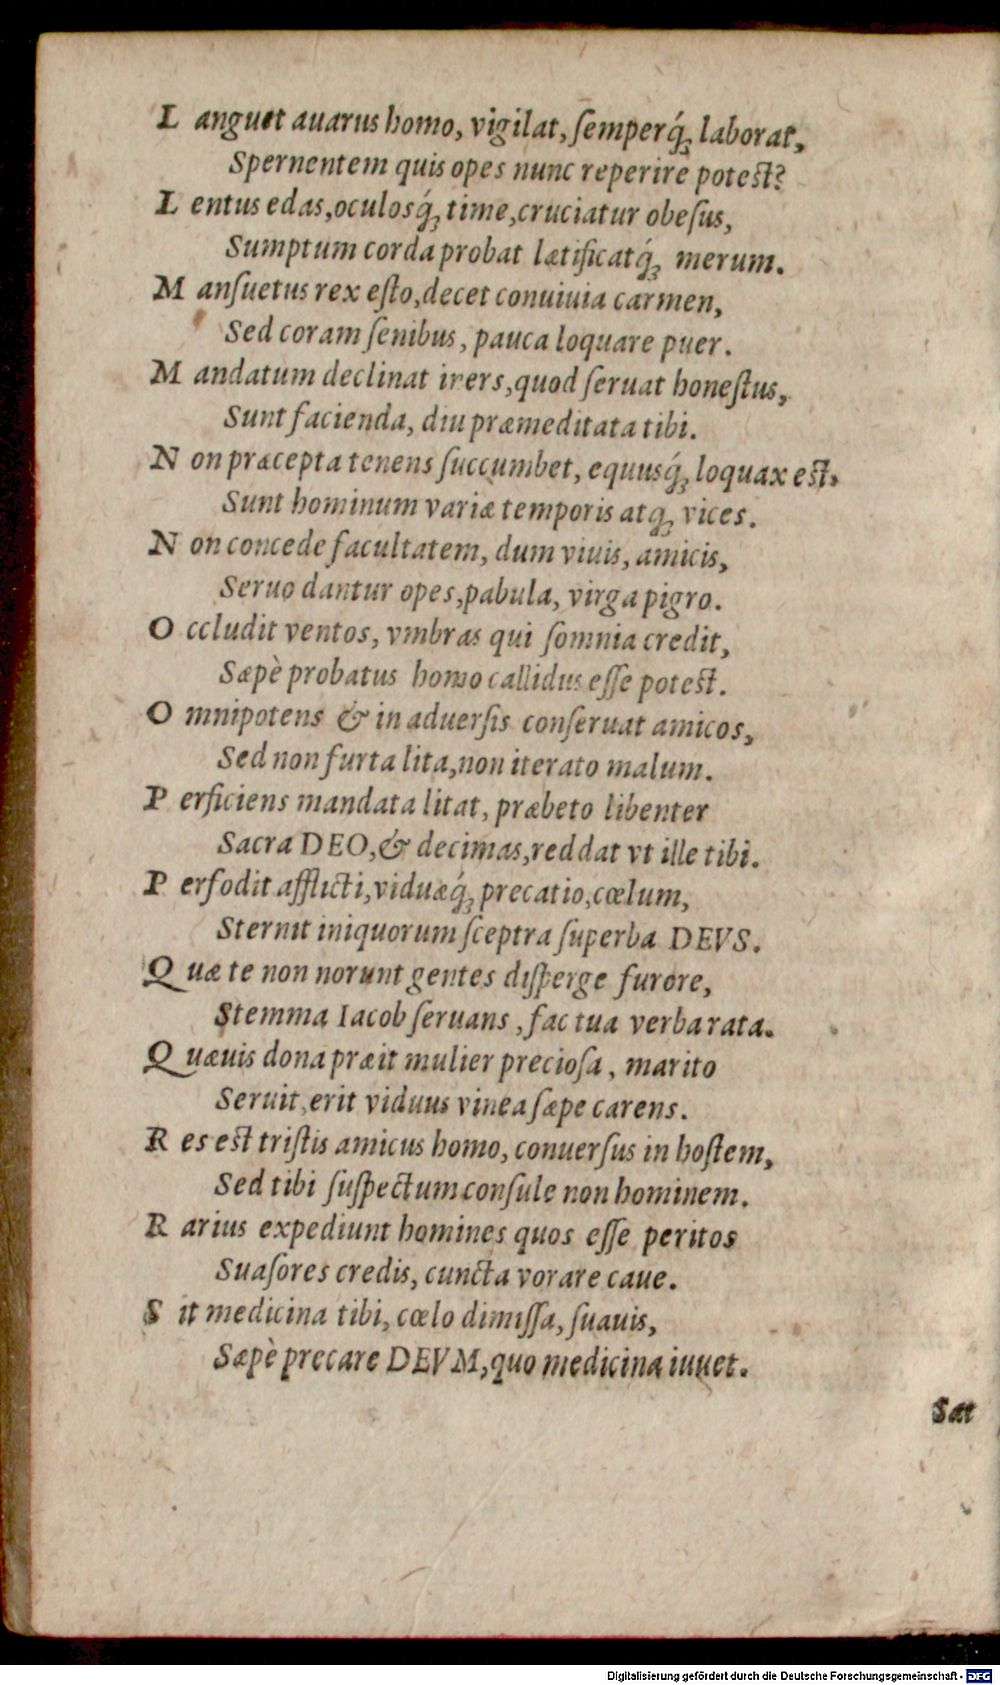 L anguet auarus homo, vigilat, ſemperq́; laborat,
Spernentem quis opes nunc reperire poteſt?
L entus edas, oculosq́; time, cruciatur obeſus,
Sumptum corda probat lætificatq́; merum.
M anſuetus rex eſto, decet conuiuia carmen,
Sed coram ſenibus, pauca loquare puer.
M andatum declinat iners, quod ſeruat honeſtus,
Sunt facienda, diu præmeditata tibi.
N on præcepta tenens ſuccumbet, equusq́; loquax eſt,
Sunt hominum variæ temporis atq; vices.
N on concede facultatem, dum viuis, amicis,
Seruo dantur opes, pabula, virga pigro.
O ccludit ventos, vmbras qui ſomnia credit,
Sæpè probatus homo callidus eſſe poteſt.
O mnipotens & in aduerſis conſeruat amicos,
Sed non furta lita, non iterato malum.
P erficiens mandata litat, præbeto libenter
Sacra DEO, & decimas, reddat vt ille tibi.
P erfodit afflicti, viduæq́; precatio, cœlum,
Sternit iniquorum ſceptra ſuperba DEVS.
Q uæ te non norunt gentes diſperge furore,
Stemma Iacob ſeruans, fac tua verba rata.
Q uæuis dona præit mulier precioſa, marito
Seruit, erit viduus vinea ſæpe carens.
R es eſt triſtis amicus homo, conuerſus in hoſtem,
Sed tibi ſuſpectum conſule non hominem.
R arius expediunt homines quos eſſe peritos
Suaſores credis, cuncta vorare caue.
S it medicina tibi, cœlo dimiſſa, ſuauis,
Sæpè precare DEVM, quo medicina iuuet.
Sæt
Digitalisierung gefördert durch die Deutsche Forschungsgemeinschaft - DFG